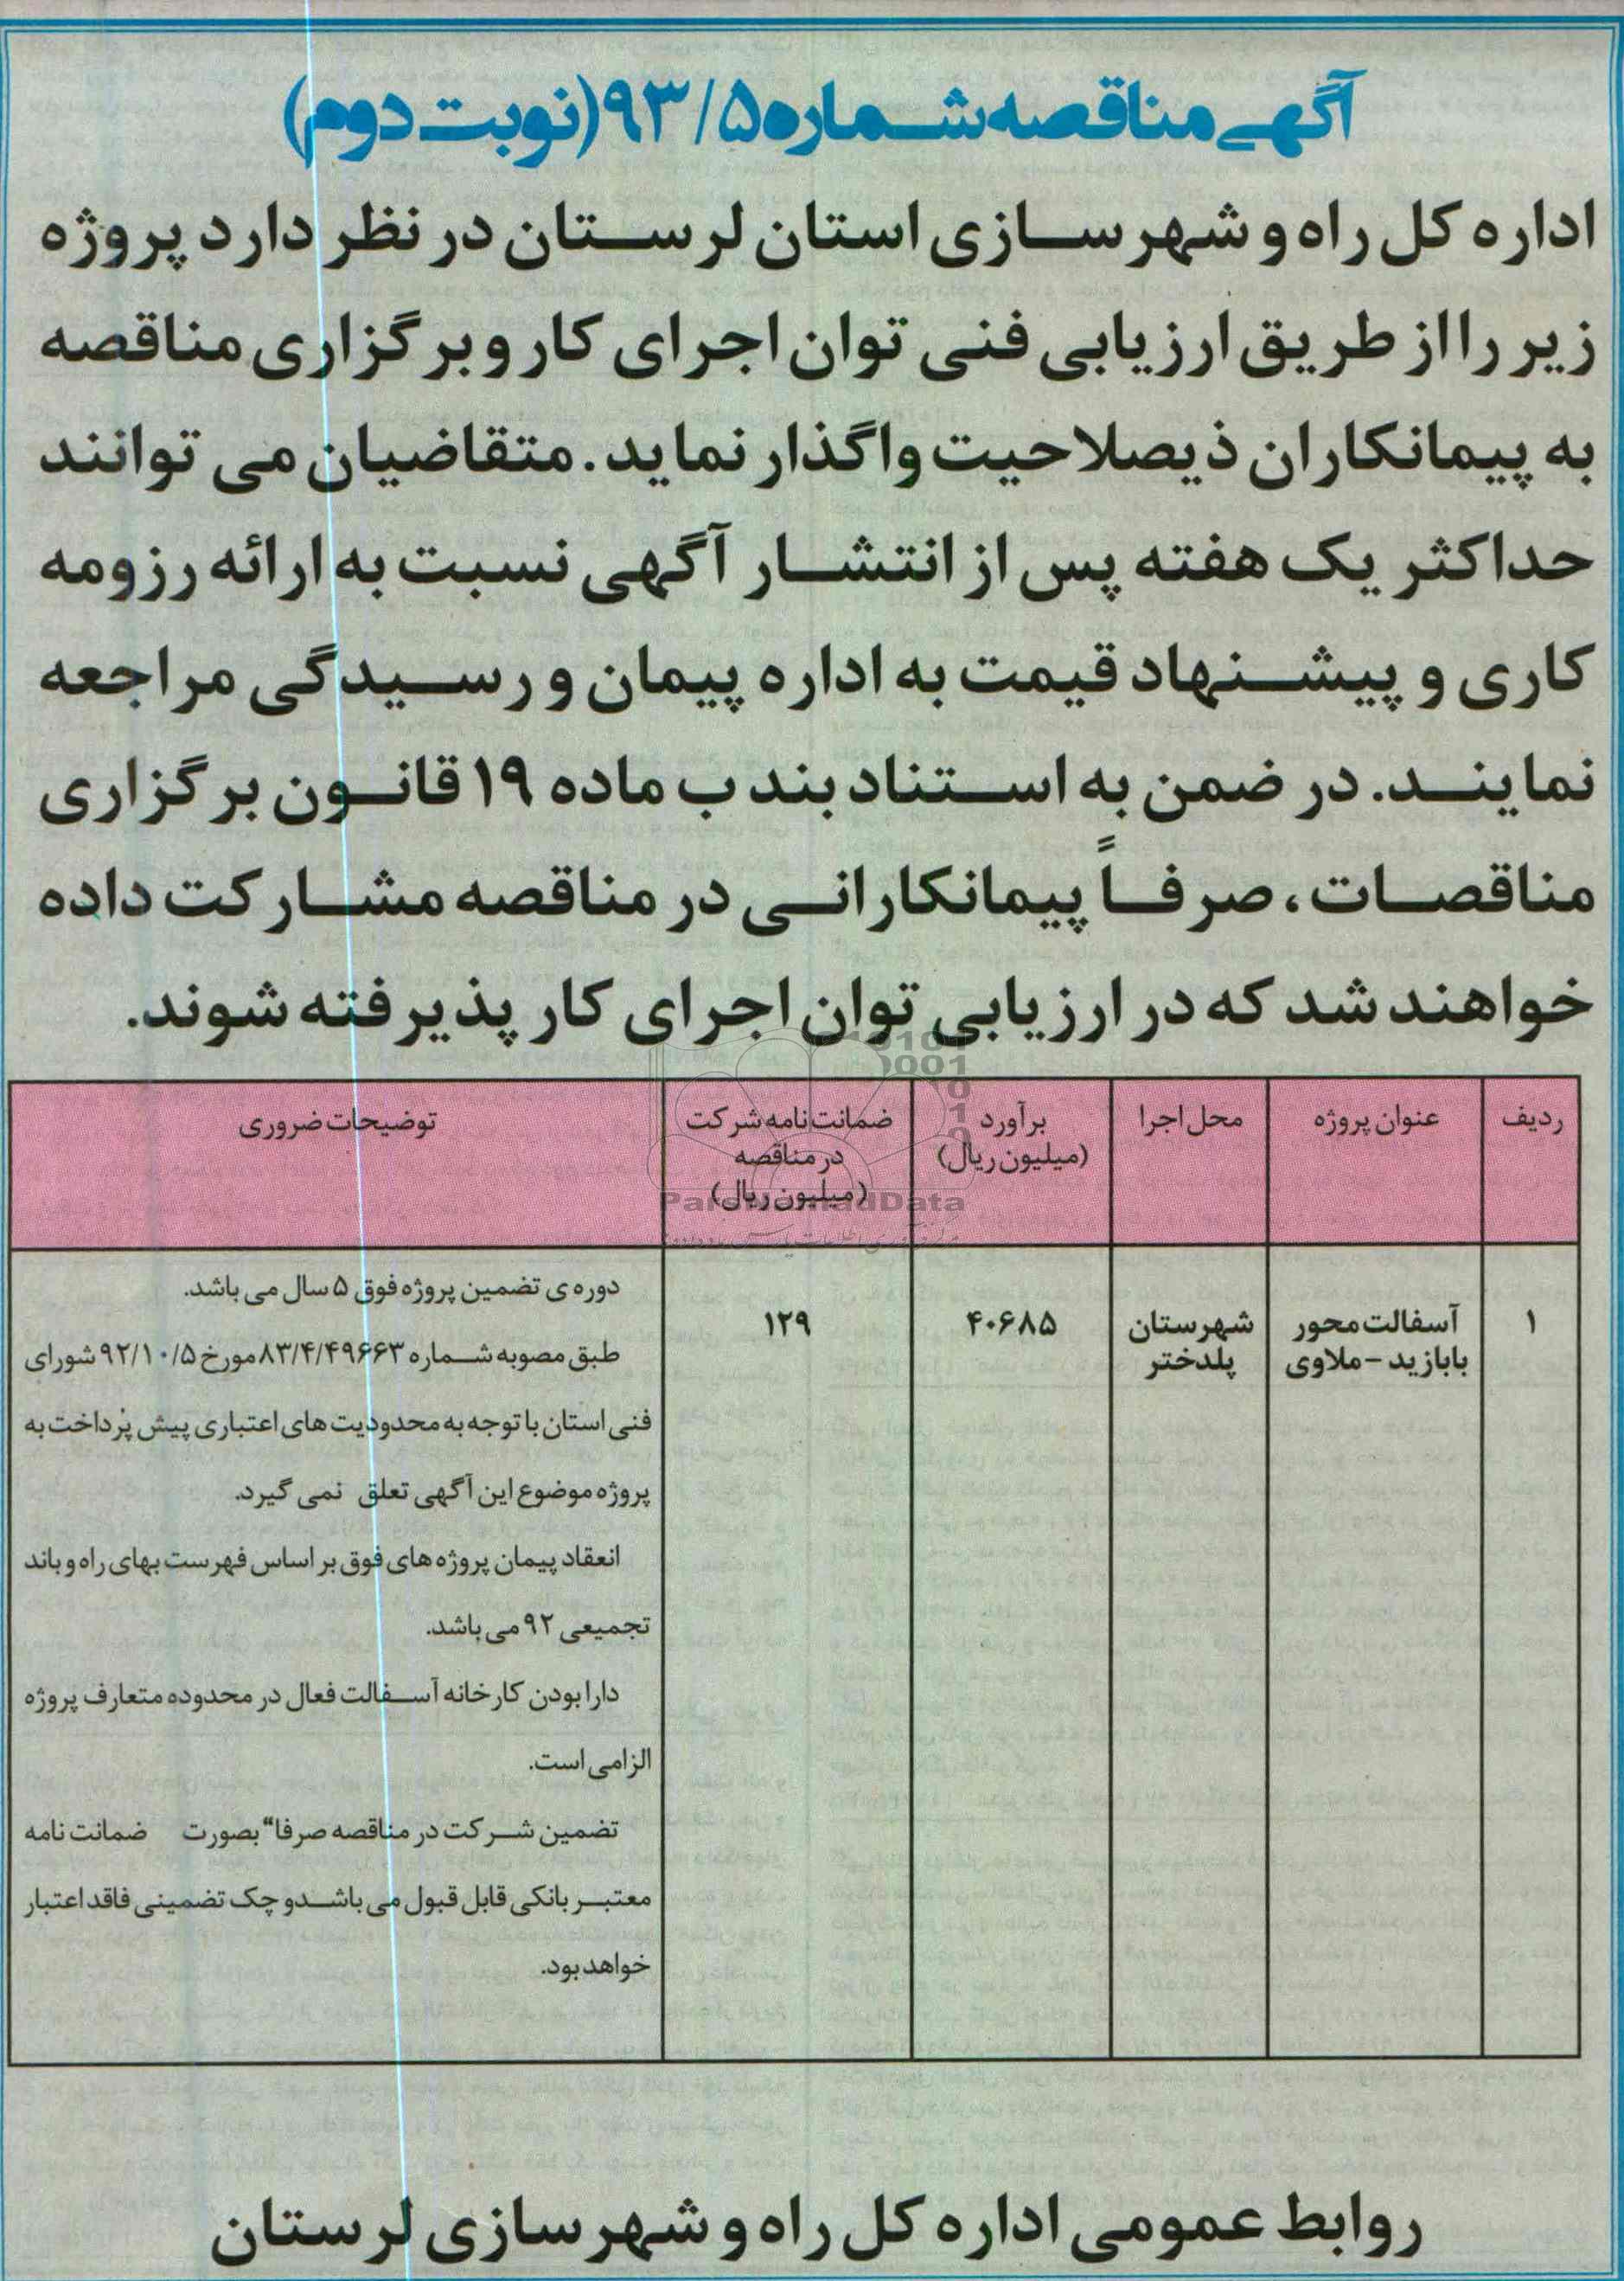 آگهی مناقصه شماره ۹۳/۵ (نوبت دوم)
اداره کل راه و شهرسازی استان لرستان در نظر دارد پروژه
زیر را از طریق ارزیابی فنی توان اجرای کار و برگزاری مناقصه
به پیمانکاران ذیصلاحیت واگذار نماید. متقاضیان می توانند
حداکثر یک هفته پس از انتشار آگهی نسبت به ارائه رزومه
کاری و پیشنهاد قیمت به اداره پیمان و رسیدگی مراجعه
نمایند. در ضمن به استناد بند ب ماده ۱۹ قانون برگزاری
مناقصات، صرفاً پیمانکارانی در مناقصه مشارکت داده
خواهند شد که در ارزیابی توان اجرای کار پذیرفته شوند.
ردیف
عنوان پروژه
محل اجرا
برآورد
(میلیون ریال)
ضمانت نامه شرکت
در مناقصه
(میلیون ریال)
توضیحات ضروری
۱
آسفالت محور
بابازید - ملاوی
شهرستان
پلدختر
۴۰۶۸۵
۱۲۹
دوره ی تضمین پروژه فوق ۵ سال می باشد.
طبق مصوبه شماره ۸۳/۴/۴۹۶۶۳ مورخ ۹۲/۱۰/۵ شورای
فنی استان با توجه به محدودیت های اعتباری پیش پرداخت به
پروژه موضوع این آگهی تعلق نمی گیرد.
انعقاد پیمان پروژه های فوق بر اساس فهرست بهای راه و باند
تجمیعی ۹۲ می باشد.
دارا بودن کارخانه آسفالت فعال در محدوده متعارف پروژه
الزامی است.
تضمین شرکت در مناقصه صرفا" بصورت ضمانت نامه
معتبر بانکی قابل قبول می باشد و چک تضمینی فاقد اعتبار
خواهد بود.
ParsNamadData
روابط عمومی اداره کل راه و شهرسازی لرستان